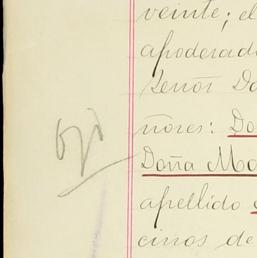 veinte; el
apoderad
Señor Do
ñores: Do
Doña Ma
apellido
cinos de